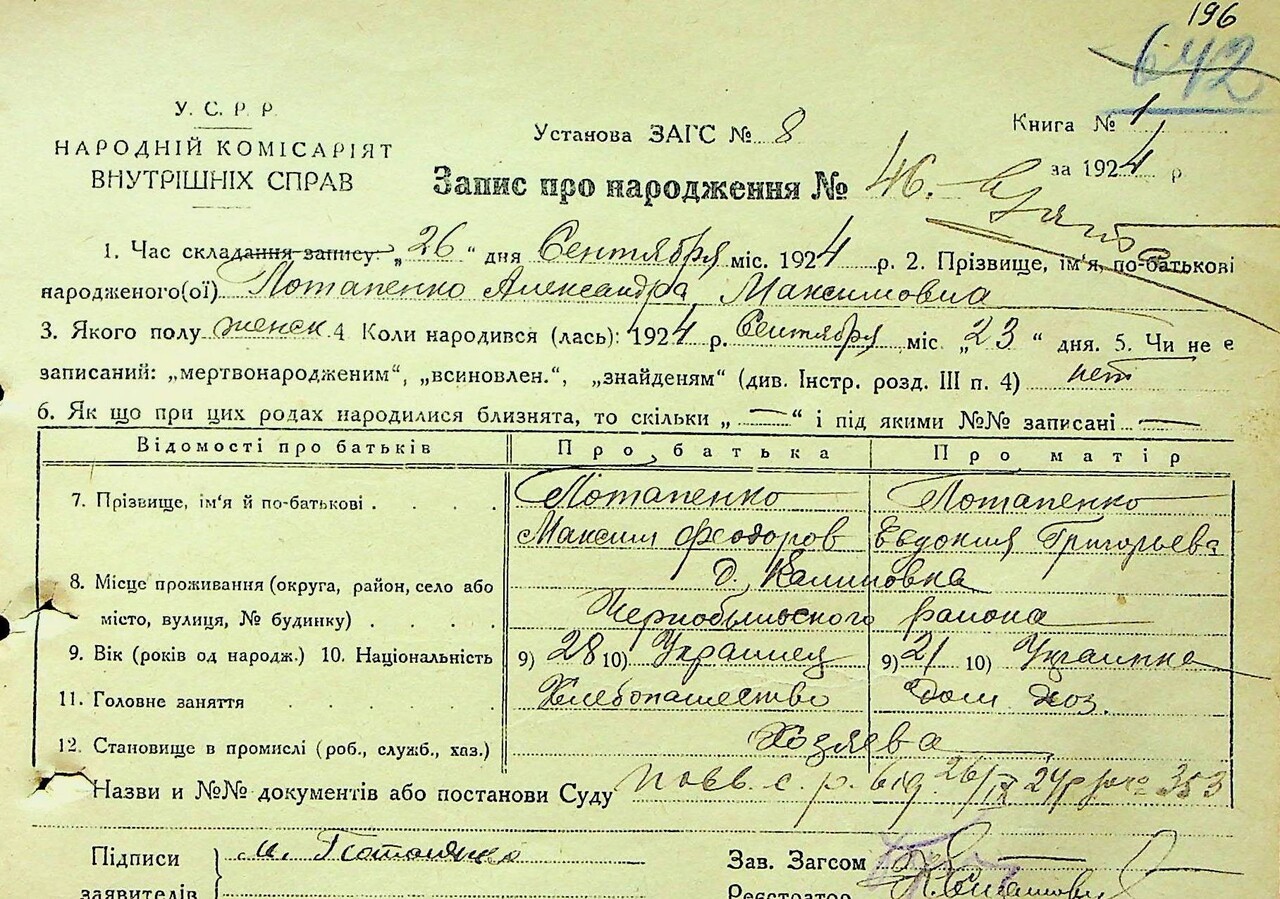 196
642
У. С. Р. Р.
НАРОДНІЙ КОМІСАРІЯТ
ВНУТРІШНІХ СПРАВ
Установа ЗАГС № 8
Книга № 1
за 1924 р.
Запис про народження № 46.
1. Час складання запису: „26“ дня Сентября міс. 1924 р. 2. Прізвище, ім'я, по-батькові
народженого(ої) Потапенко Александра Максимовна
3. Якого полу женск 4 Коли народився (лась): 1924 р. Сентября міс. „23“ дня. 5. Чи не є
записаний: „мертвонародженим“, „всиновлен.“, „знайденям“ (див. Інстр. розд. III п. 4) нет
6. Як що при цих родах народилися близнята, то скільки „—“ і під якими №№ записані —
Відомості про батьків Про батька Про матір
7. Прізвище, ім'я й по-батькові . . . . Потапенко Потапенко
Максим Феодоров Евдокия Григорьева
8. Місце проживання (округа, район, село або д. Калиновка
місто, вулиця, № будинку) . . . . Чернобыльского района
9. Вік (років од народж.) 10. Національність 9) 28 10) Украинец 9) 21 10) Украинка
11. Головне заняття . . . . . Хлебопашество Дом. хоз.
12. Становище в промислі (роб., служб., хаз.) Хозяева
Назви и №№ документів або постанови Суду с. р. від 26/IX 24р № 353
Підписи М. Потапенко Зав. Загсом
заявителів Реєстратор